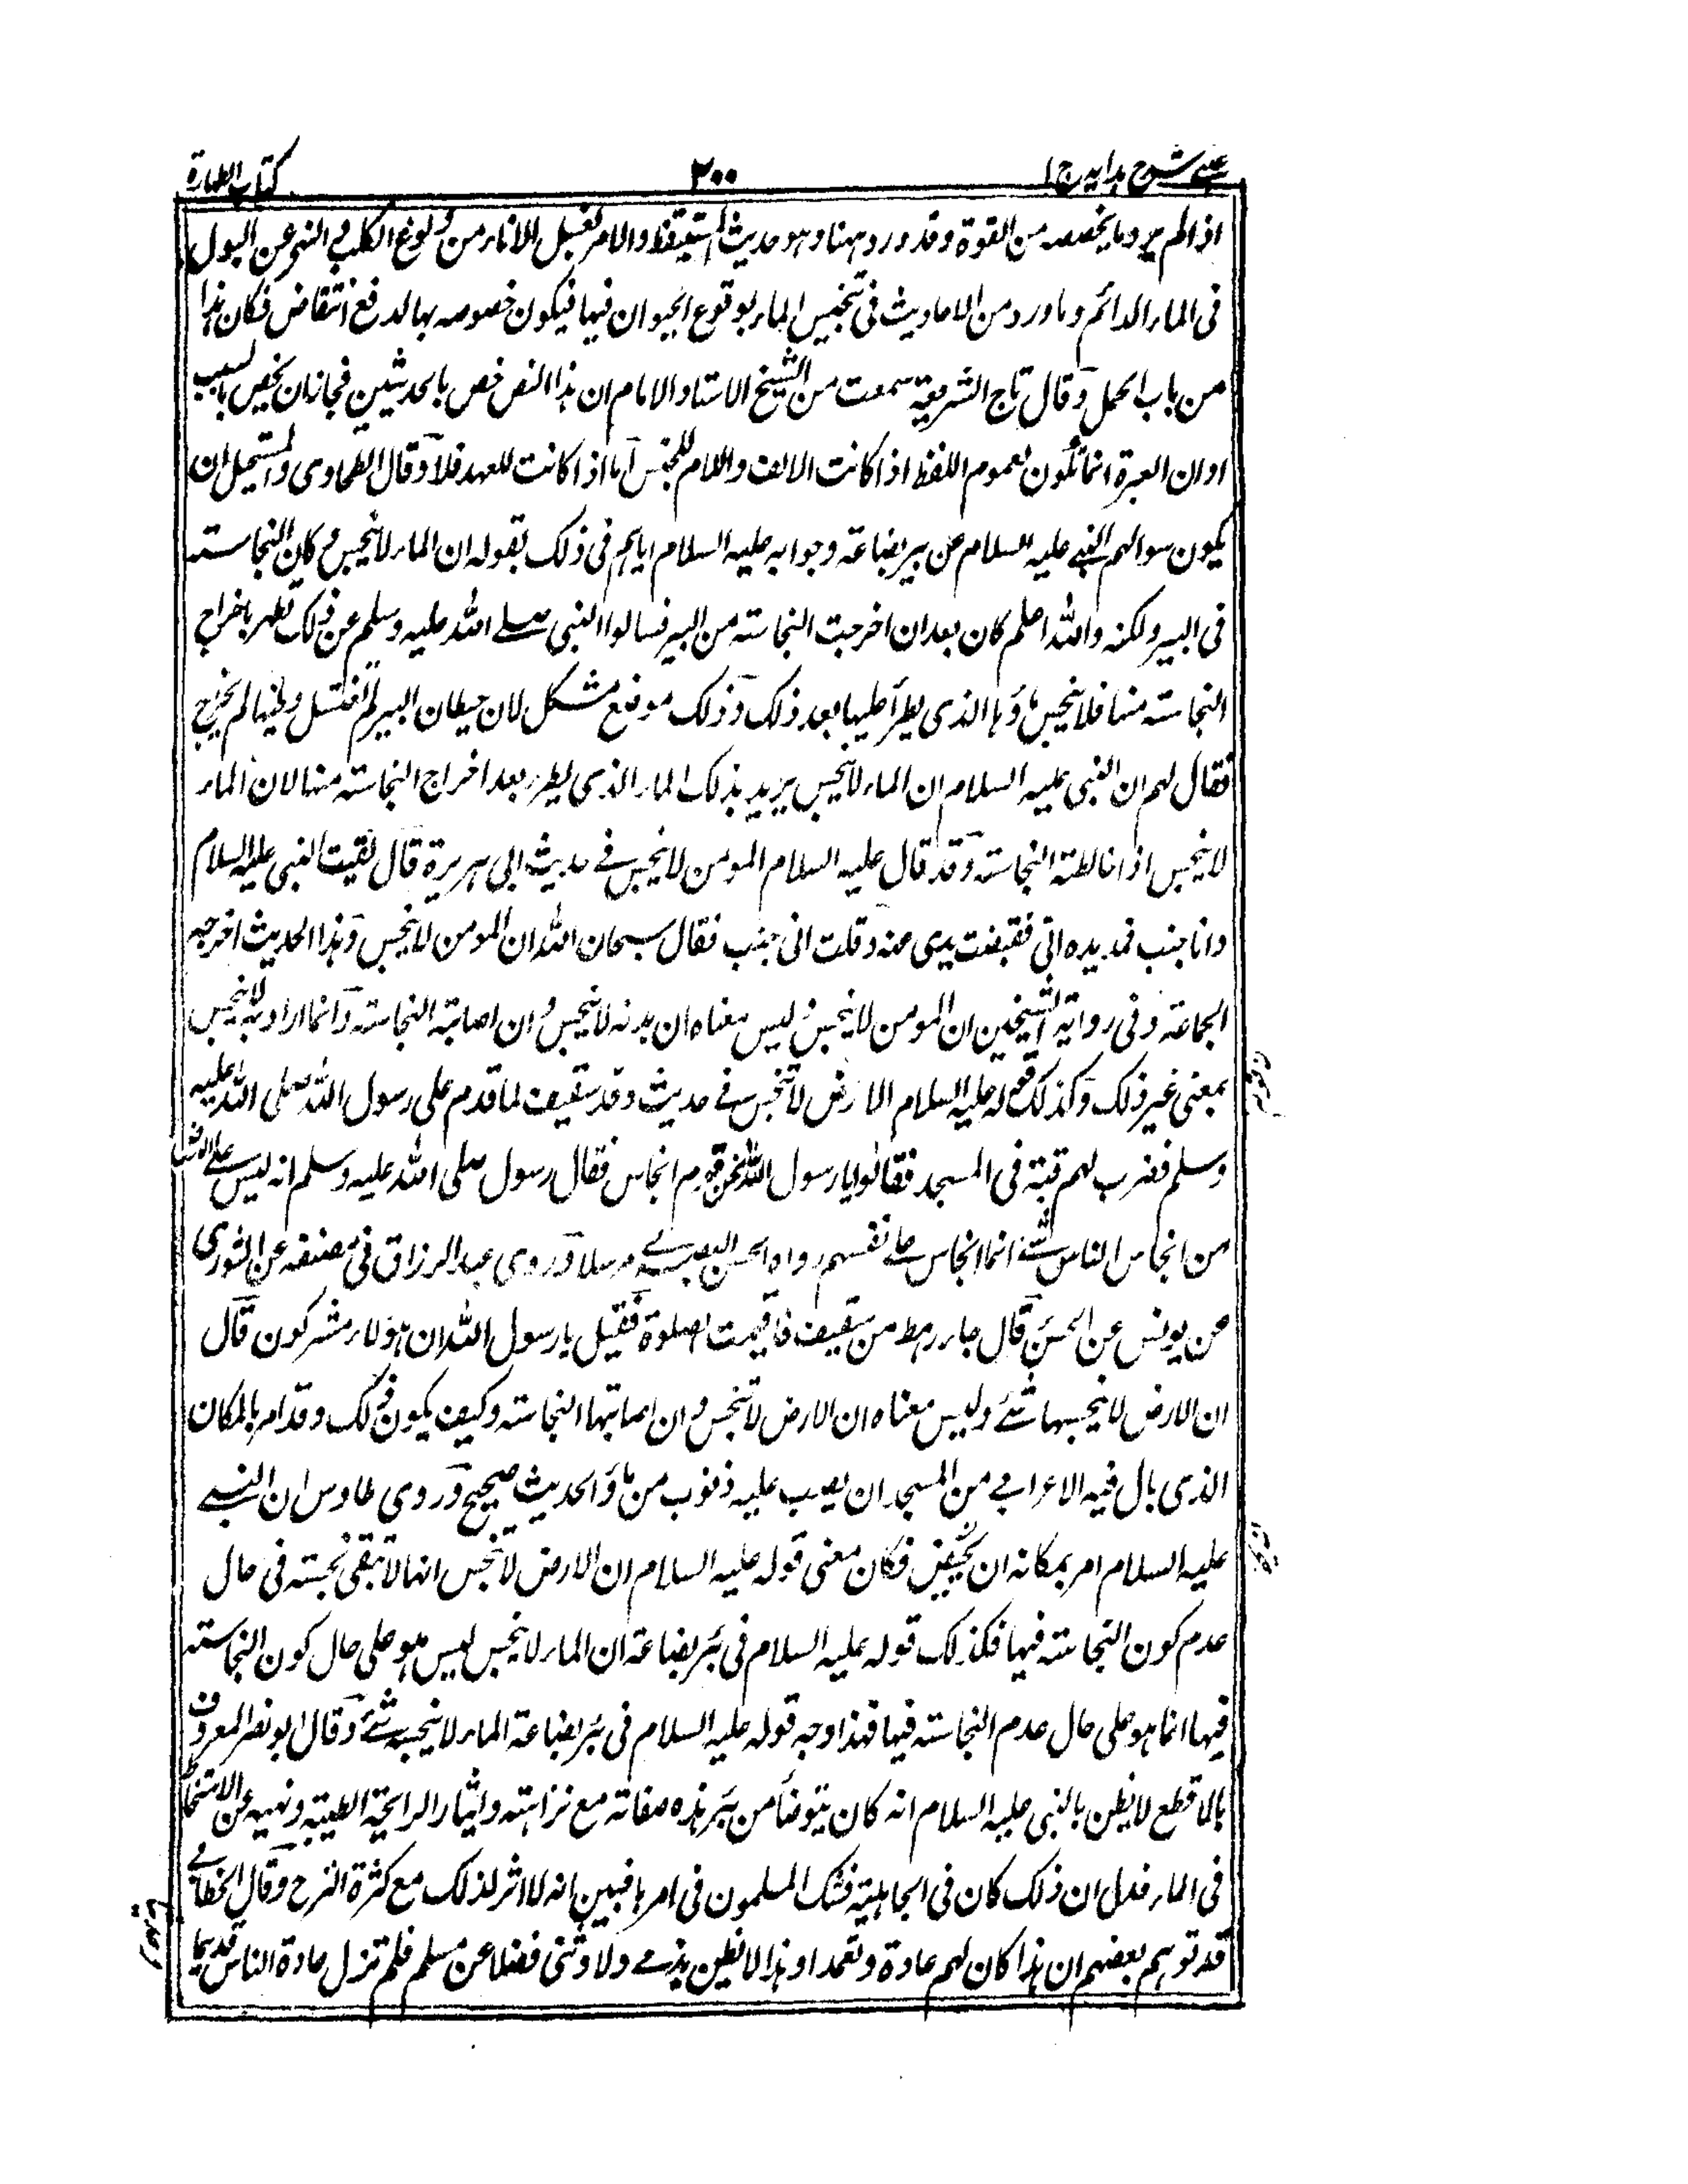 عينى شرح هدايه ج ١
٢٠٠
كتاب الطهارة
اذا لم يرد ما يخصصه من القوة وقد ورد ههنا وهو حديث المستيقظ والامر بغسل الاناء من ولوغ الكلب والنهى عن البول
فى الماء الدائم وما ورد من الاحاديث فى تنجيس الماء بوقوع الحيوان فيها فيكون خصوصه بها لدفع انتقاض فكان هذا
من باب الحمل وقال تاج الشريعة سمعت من الشيخ الاستاد الامام ان هذا النص خص بالحديثين فجازان يخص بالسبب
او ان العبرة انما تكون لعموم اللفظ اذا كانت الالف واللام للجنس اما اذا كانت للعهد فلا وقال الطحاوى والمستحيل ان
يكون سوالهم النبى عليه السلام عن بير بضاعة وجوابه عليه السلام اياهم فى ذلك بقوله ان الماء لا ينجس وكان النجاسته
فى البير ولكنه والله اعلم كان بعد ان اخرجت النجاسته من البير فسالوا النبى صلى الله عليه وسلم عن ذلك تطهر باخراج
النجاسته منها فلا ينجس ماؤها الذى يطرأ عليها بعد ذلك وذلك موضع مشكل لان حيطان البير لم تغتسل وطينها لم يخرج
فقال لهم ان النبى عليه السلام ان الماء لا ينجس يريد بذلك الماء الذى يطرء بعد اخراج النجاسته منها لا ان الماء
لا ينجس اذا خالطته النجاسته وقد قال عليه السلام المومن لا ينجس فى حديث ابى هريرة قال لقيت النبى عليه السلام
وانا جنب فمد يده الى فقبضت يدى منه وقلت انى جنب فقال سبحان الله ان المومن لا ينجس وهذا الحديث اخرجه
الجماعة وفى رواية الشيخين ان المومن لا ينجس وليس معناه ان بدنه لا ينجس وان اصابته النجاسته وانما اراد به لا ينجس
بمعنى غير ذلك وكذلك قوله عليه السلام الارض لا تنجس فى حديث وفد سقيف لما قدم على رسول الله صلى الله عليه
وسلم فضرب لهم قبة فى المسجد فقالوا يا رسول الله نحن قوم انجاس فقال رسول صلى الله عليه وسلم انه ليس على الارض
من انجاس الناس شئ انما انجاس على نفسهم رواه الحسن البصرى مرسلا وروى عبد الرزاق فى مصنفه عن الثورى
عن يونس عن الحسن قال جاء رهط من سقيف فاقيمت الصلوة فقيل يا رسول الله ان هؤلاء مشركون قال
ان الارض لا ينجسها شئ وليس معناه ان الارض لا تنجس وان اصابتها النجاسته وكيف يكون ذلك وقد امر بالمكان
الذى بال فيه الاعرابى من المسجد ان يصب عليه ذنوب من ماؤ الحديث صحيح وروى طاوس ان النبى
عليه السلام امر بمكانه ان يحفر فكان معنى قوله عليه السلام ان الارض لا تنجس انها لا تبقى نجسته فى حال
عدم كون النجاسته فيها فكذلك قوله عليه السلام فى بئر بضاعة ان الماء لا ينجس ليس هو على حال كون النجاسته
فيها انما هو على حال عدم النجاسته فيها فهذا وجه قوله عليه السلام فى بئر بضاعة الماء لا ينجسه شئ وقال ابو نصر المعروف
بالاقطع لا يظن بالنبى عليه السلام انه كان يتوضأ من بئر هذه صفاته مع نزاهته وايثار الرايحة الطيبة ونهيه عن الامتخاط
فى الماء فدل ان ذلك كان فى الجاهلية فشك المسلمون فى امرها فبين انه لا اثر لذلك مع كثرة النزح وقال الخطابى
قد توهم بعضهم ان هذا كان لهم عادة وتعمدا وهذا لا يظن بذمى ولا وثنى فضلا عن مسلم فلم تزل عادة الناس قديما